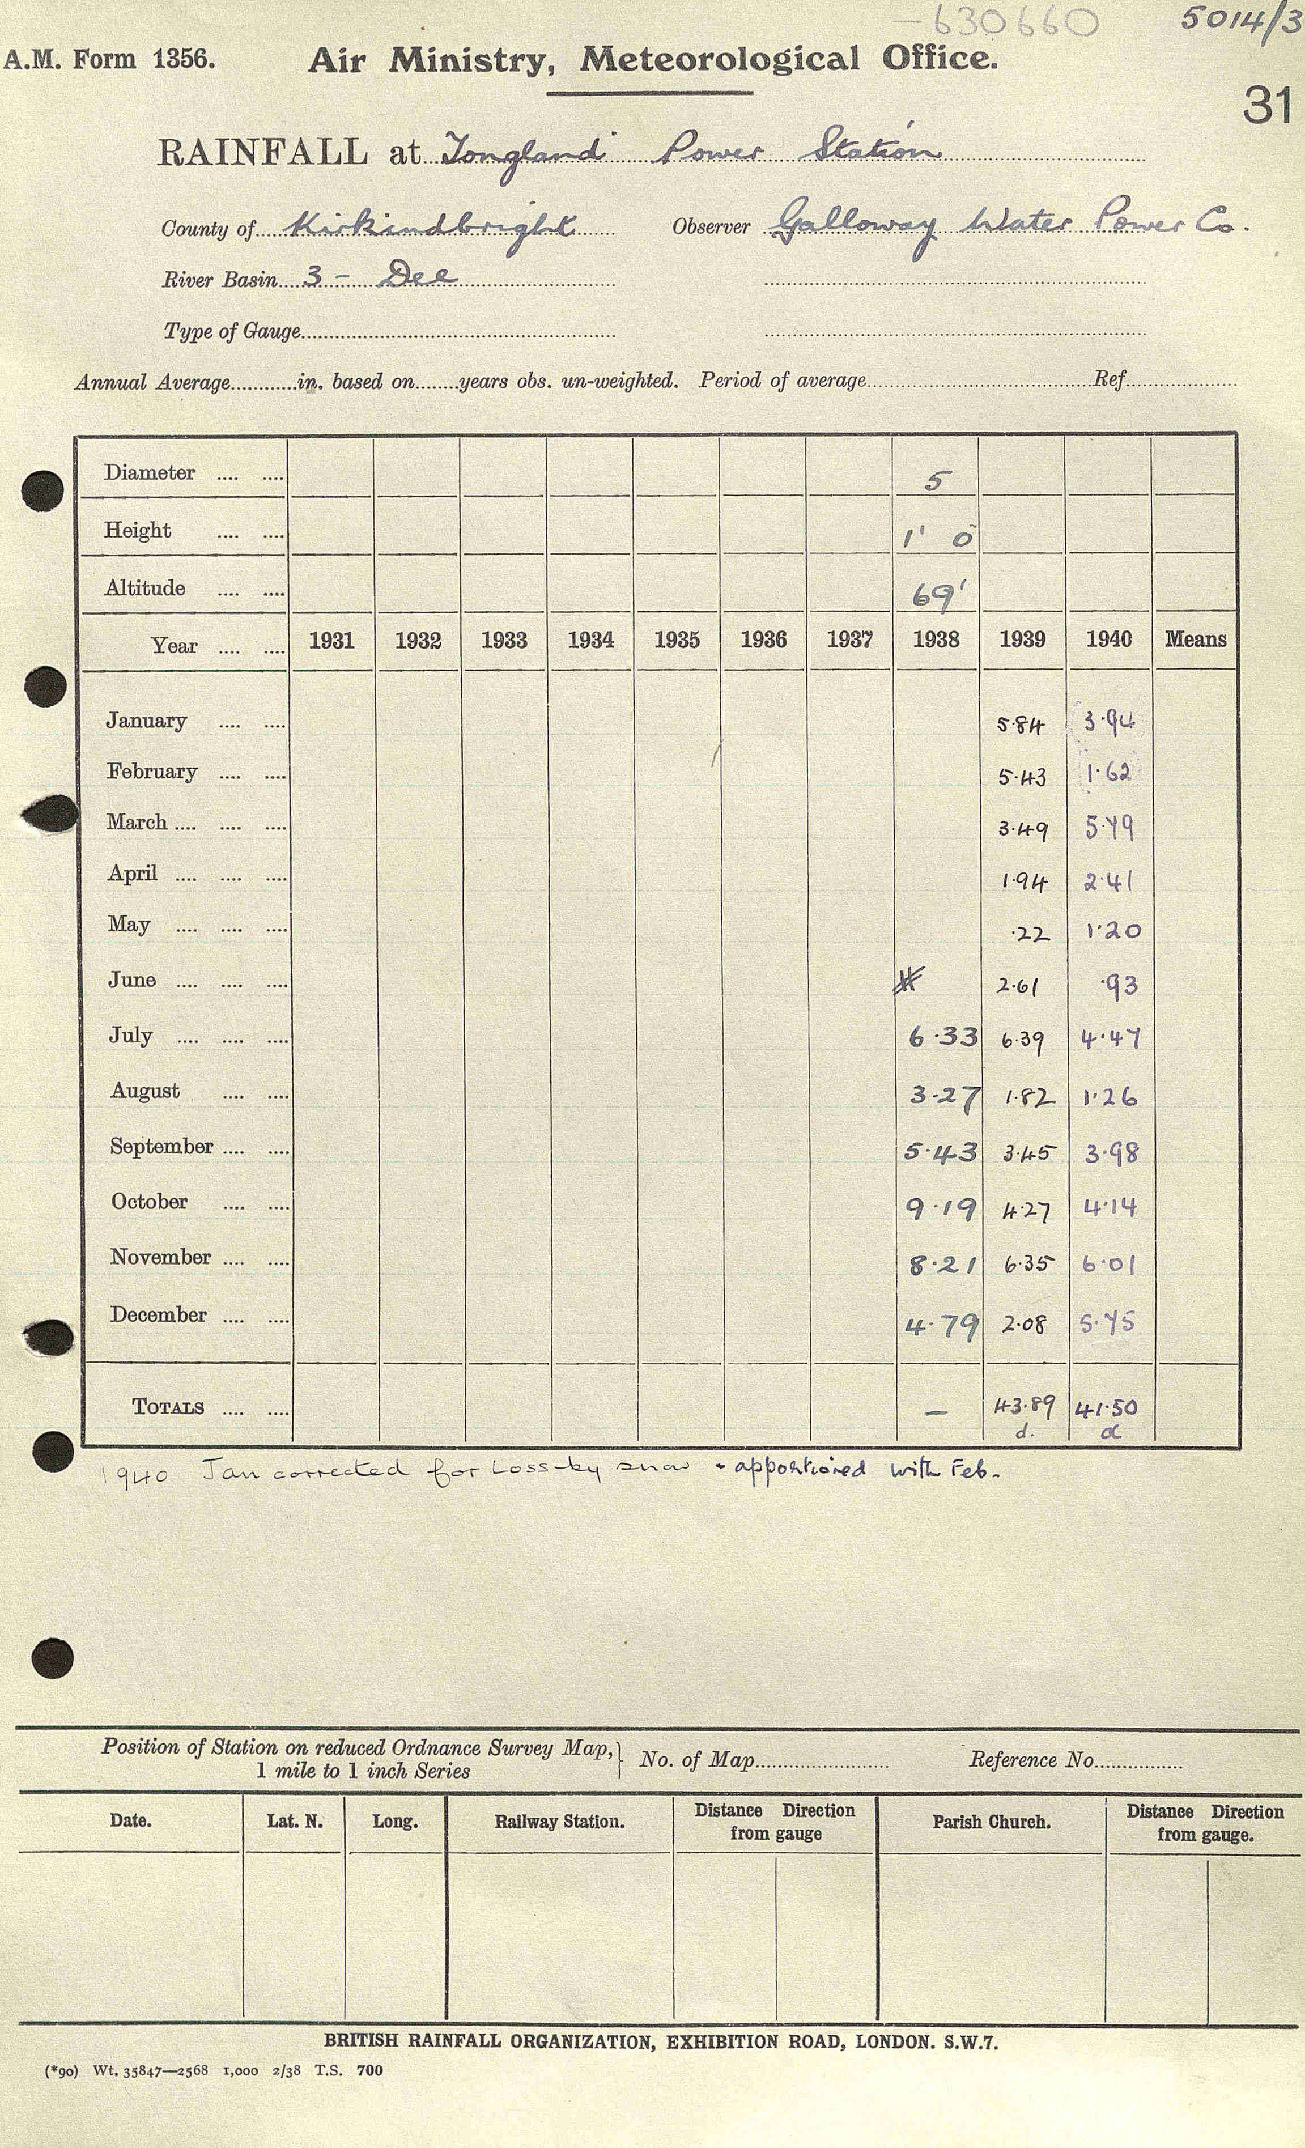 630660 5014/3
A.M. Form 1356. Air Ministry, Meteorological Office.
31
RAINFALL at Tongland Power Station
County of Kirkcudbright Observer Galloway Water Power Co.
River Basin 3 - Dee
Type of Gauge
Annual Average in. based on years obs. un-weighted. Period of average Ref
Diameter 5
Height 1' 0"
Altitude 69'
Year 1931 1932 1933 1934 1935 1936 1937 1938 1939 1940 Means
January 5.84 3.94
February 5.43 1.62
March 3.49 5.79
April 1.94 2.41
May .22 1.20
June 2.61 .93
July 6.33 6.39 4.47
August 3.27 1.82 1.26
September 5.43 3.45 3.98
October 9.19 4.27 4.14
November 8.21 6.35 6.01
December 4.79 2.08 5.75
TOTALS – 43.89 41.50
d. d
1940 Jan corrected for loss by snow + apportioned with Feb.
Position of Station on reduced Ordnance Survey Map, No. of Map Reference No.
1 mile to 1 inch Series
Date. Lat. N. Long. Railway Station. Distance Direction from gauge Parish Church. Distance Direction from gauge.
BRITISH RAINFALL ORGANIZATION, EXHIBITION ROAD, LONDON. S.W.7.
(*90) Wt. 35847—2568 1,000 2/38 T.S. 700